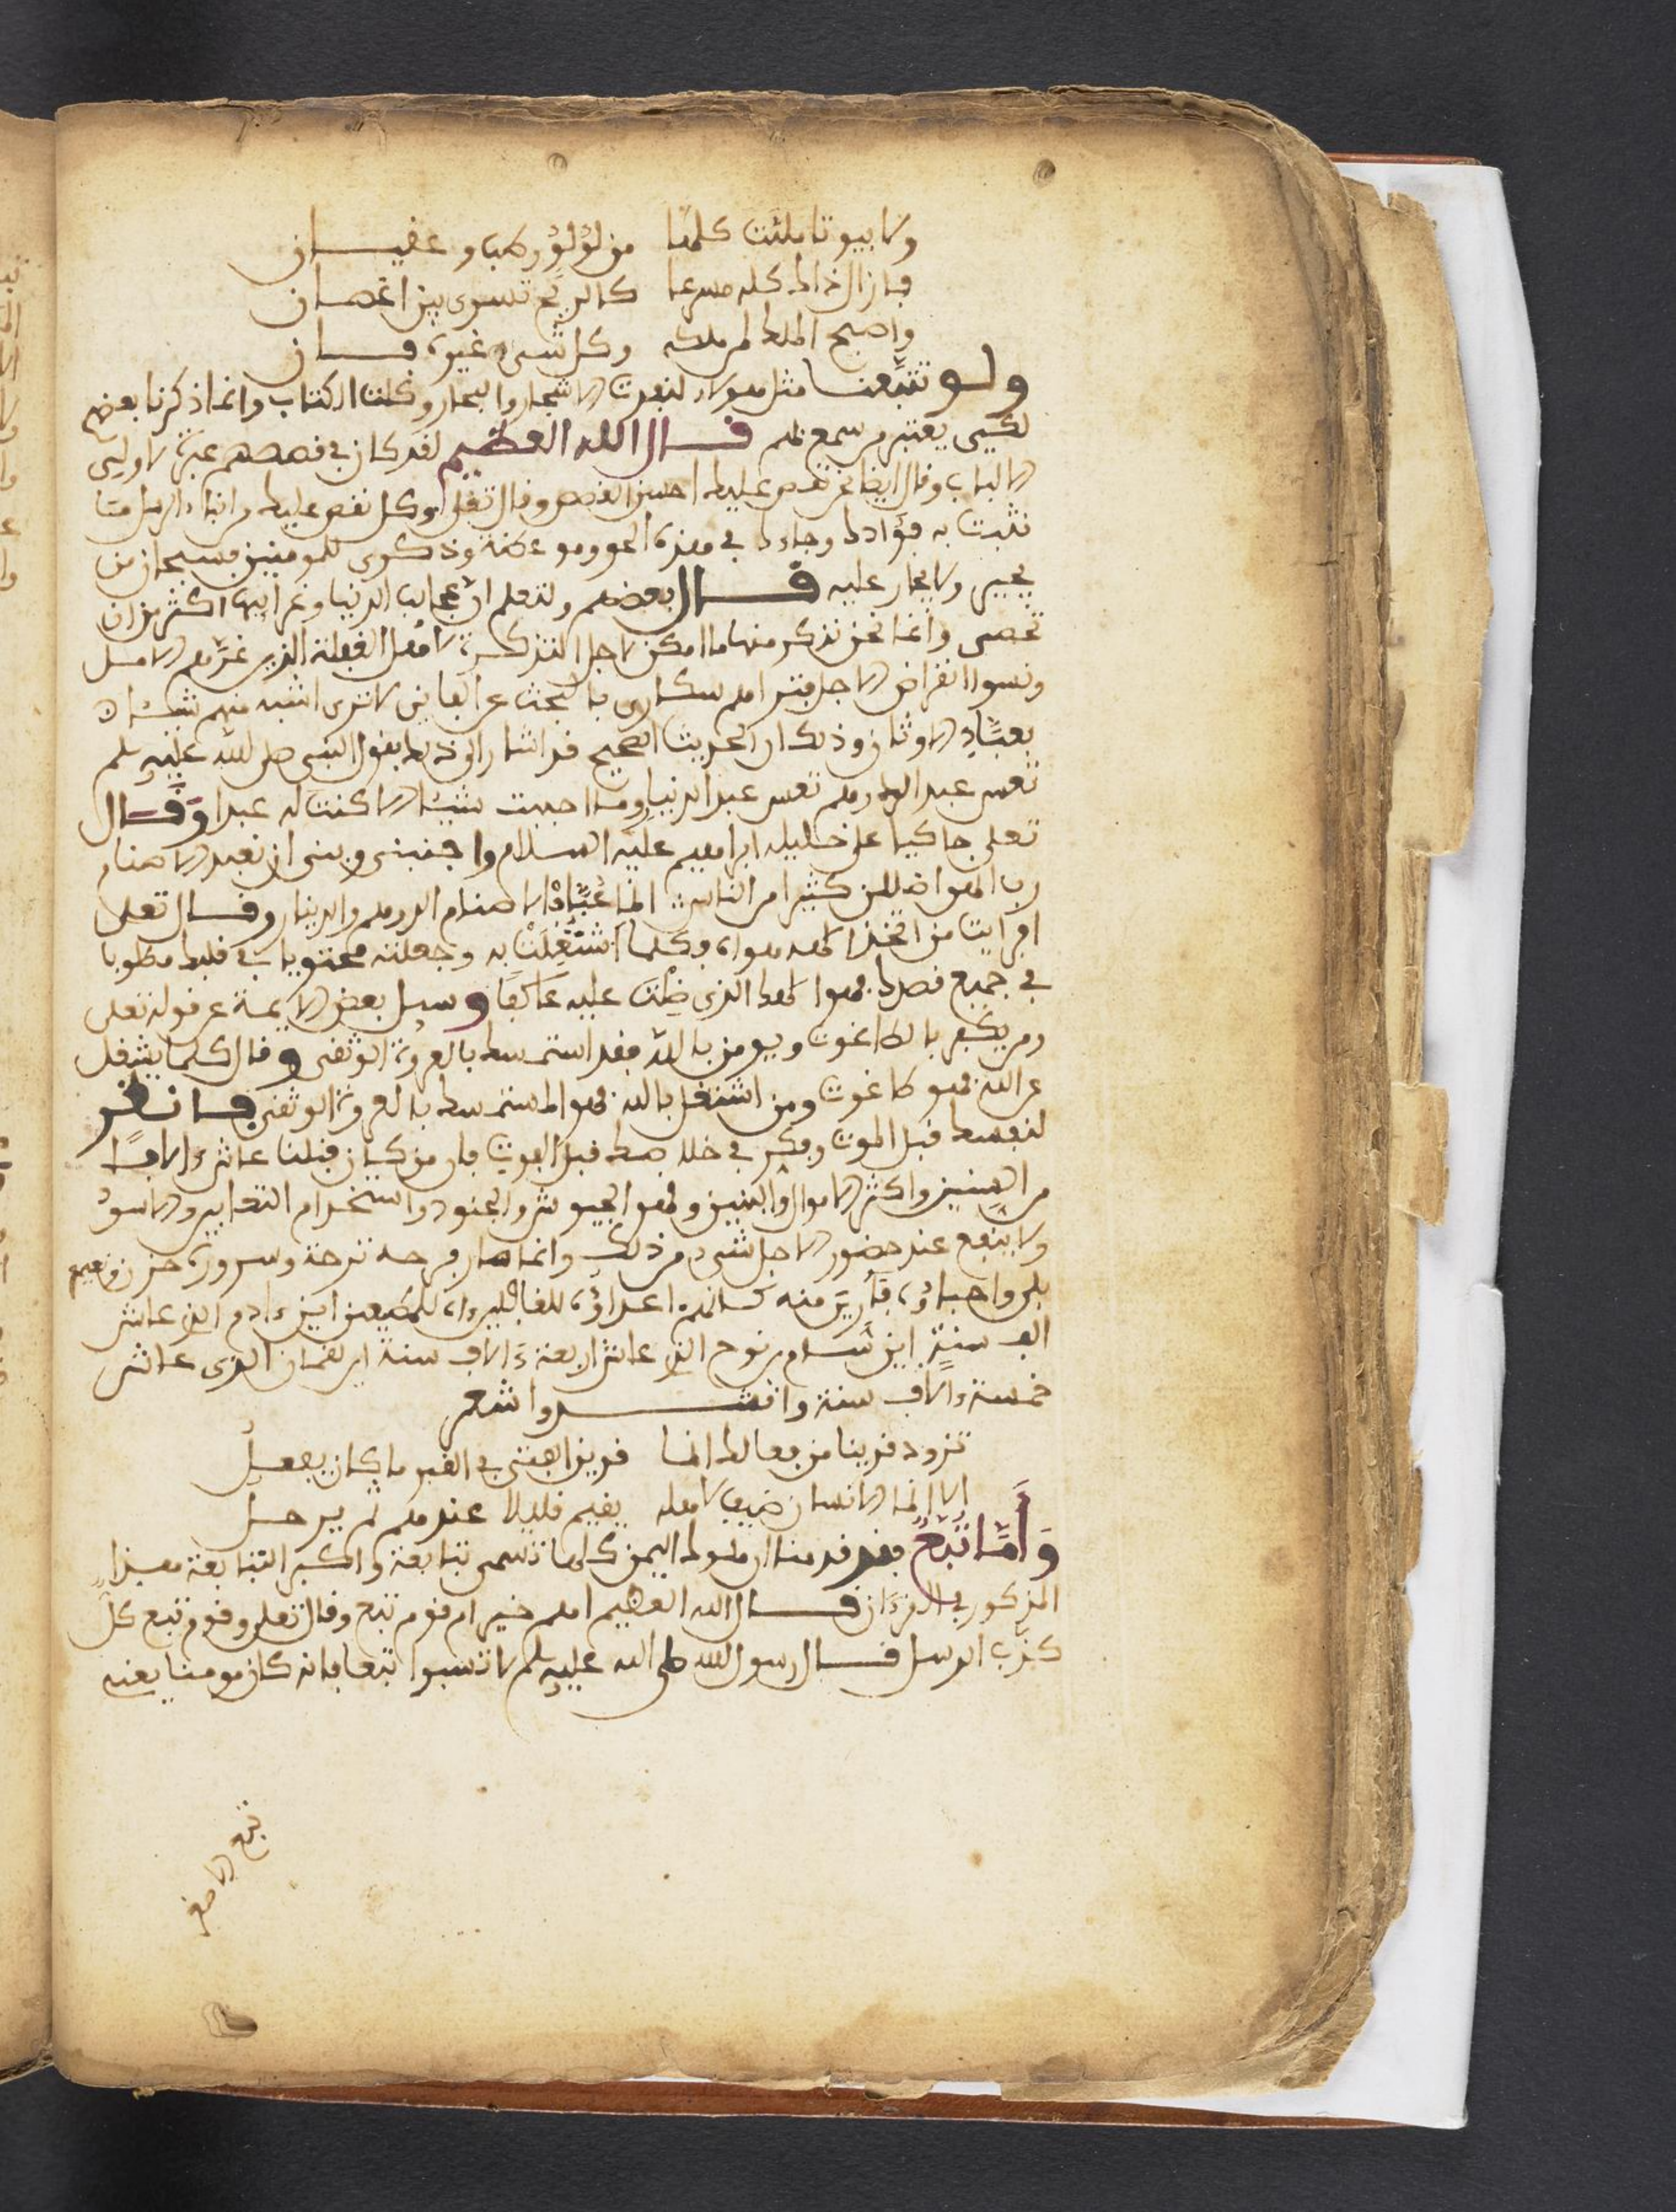 ولا بيوتا ملئت كلها من لؤلؤ رطب وعقيان
فزال ذاك كله مسرعا كالريح تسري بين اغصان
واصبح الملك لمن ملكه وكل شيء غيره فان
ولو تتبعنا مثل هولاء لنفدت الاشجار والبحار وكلت الكتاب وانما ذكرنا بعضهم
لكي يعتبر من سمع بهم قال الله العظيم لقد كان في قصصهم عبرة لاولي
الالباب وقال ايضا نحن نقص عليك احسن القصص وقال تعلى وكل نقص عليك من انباء الرسل ما
نثبت به فؤادك وجاءك في هذه الحق وموعظة وذكرى للمومنين فسبحان من
يجير ولا يجار عليه قال بعضهم ولتعلم ان عجايب الدنيا وغرايبها اكثر من ان
تحصى وانما نحن نذكر منها ما امكن لاجل التذكرة لاهل الغفلة الذين غرهم الامل
ونسوا انقراض الاجل فتراهم سكارى بالبحث عن الفاني لا ترى اشبه منهم شبها
بعباد الاوثان وذلك ان الحديث الصحيح قد اشار الى ذلك بقول النبي صلى الله عليه وسلم
تعس عبد الدرهم تعس عبد الدنيا وما احببت شيئا الا كنت له عبدا وقال
تعلى حاكيا عن خليله ابراهيم عليه السلام واجنبني وبني ان نعبد الاصنام
رب انهن اضللن كثيرا من الناس انما عباد الاصنام الدرهم والدينار وقال تعلى
افرايت من اتخذ الهه هواه فكلما اشتغلت به وجعلته محتويا في قلبك مطلوبا
في جميع قصدك فهو الهك الذي ظلت عليه عاكفا وسيل بعض الايمة عن قوله تعلى
ومن يكفر بالطاغوت ويومن بالله فقد استمسك بالعروة الوثقى وقال كلما يشغل
عن الله فهو طاغوت ومن اشتغل بالله فهو المستمسك بالعروة الوثقى فانظر
لنفسك قبل الموت وفكر في خلاصك قبل الفوت فان من كان قبلنا عاش ءالافا
من السنين واكثر الاموال والبنين وقهر الجيوش والجنود واستخدام
ولا ينفع عند حضور الاجل شيء من ذلك وانما صار فرحه ترحة وسروره حزن ونعيم
بلي واحباؤه فارين منه كانهم اعداؤه اين ءادم الذي عاش
الف سنة اين نوح الذي عاش اربعة ءالاف سنة اين لقمان الذي عاش
خمسة ءالاف سنة وانشدوا شعر
تزود قرينا من فعالك انما قرين الفتى في القبر ما كان يفعل
الا انما الانسان ضيف لاهله يقيم قليلا عندهم ثم يرحل
وأما تبع فقد قدمنا ان ملوك اليمن كلها تسمى تبابعة واكبر التبابعة هذا
المذكور في القرءان قال الله العظيم اهم خير ام قوم تبع وقال تعلى وقوم تبع كل
كذب الرسل قال رسول الله صلى الله عليه وسلم لا تسبوا تبعا فانه كان مومنا يعني
تبع الاصغر